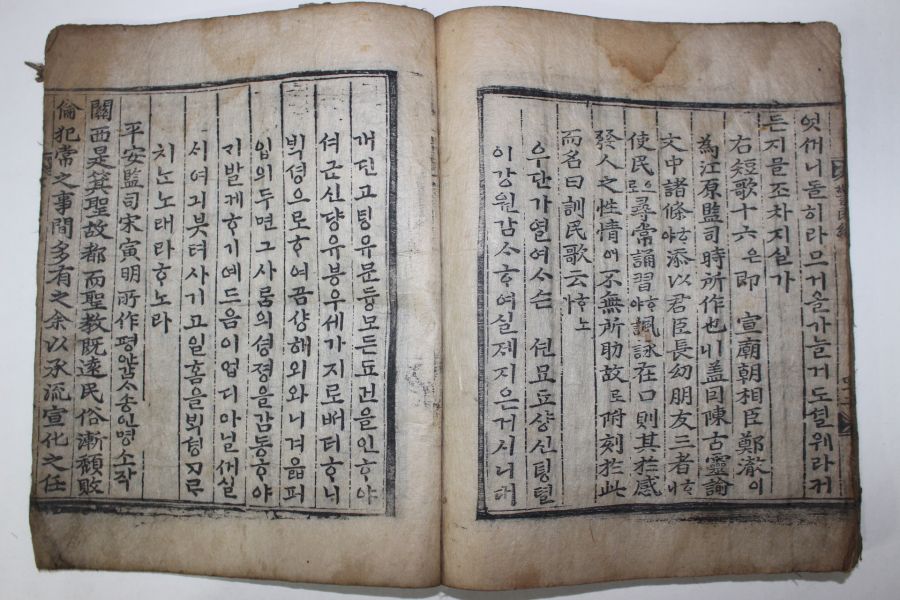 엇ᄯᅢ니돌히라므거올가늘거도셜웨라커
든지믈조차지실가
右短歌十六은即 宣廟朝相臣鄭澈이
為江原監司時所作也ㅣ니盖因陳古靈諭
文中諸條ᄒᆞ야添以君臣長幼朋友三者ᄒᆞ니
使民으로尋常誦習ᄒᆞ야諷詠在口則其於感
發人之性情에不無所助故로附刻於此
而名曰訓民歌云ᄒᆞ노라
우단가열여ᄉᆞᄉᆞᆫ 션묘됴샹신뎡텰
이강원감ᄉᆞᄒᆞ여실제지은거시니대
개딘고령유문듕모든됴건을인ᄒᆞ야
셔군신댱유븡우세가지로배터ᄒᆞ니
ᄇᆡᆨ셩으로ᄒᆞ여곰샹해외와니겨읇퍼
입의두면그사ᄅᆞᆷ의셩졍을감동ᄒᆞ야
ᄀᆡ발게ᄒᆞ기예드음이업디아닐ᄉᆡ실
서여긔븟텨사기고일홈을ᄇᆡᆨ셩ᄀᆞᄅᆞ
치ᄂᆞᆫ노래라ᄒᆞ노라
平安監司宋寅明所作평안감ᄉᆞ송인명소작
關西是箕聖故都而聖教既遠民俗漸頹敗
倫犯常之事間多有之余以承流宣化之任